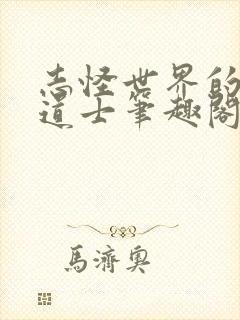 志怪世界的
道士筆趣閣
馬濟奧